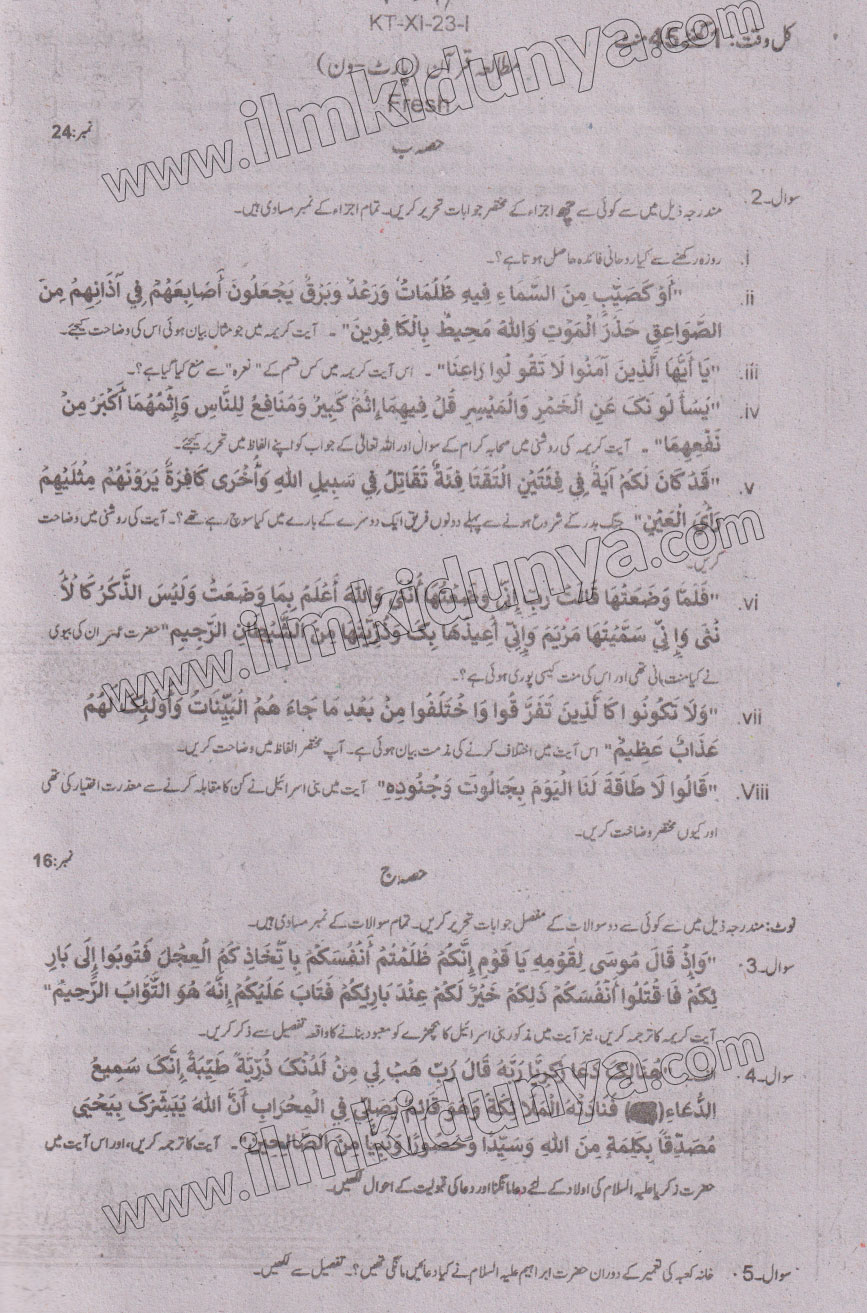 KT-XI-23-I
کل وقت: 1 گھنٹہ 45 منٹ
مطالعہ قرآن (پارٹ-ون)
Fresh
نمبر:24
حصہ ب
سوال۔2 مندرجہ ذیل میں سے کوئی سے چھ اجزاء کے مختصر جوابات تحریر کریں۔ تمام اجزاء کے نمبر مساوی ہیں۔
i. روزہ رکھنے سے کیا روحانی فائدہ حاصل ہوتا ہے؟۔
ii. "أَوْ كَصَيِّبٍ مِنَ السَّمَاءِ فِيهِ ظُلُمَاتٌ وَرَعْدٌ وَبَرْقٌ يَجْعَلُونَ أَصَابِعَهُمْ فِي آذَانِهِمْ مِنَ
الصَّوَاعِقِ حَذَرَ الْمَوْتِ وَاللهُ مُحِيطٌ بِالْكَافِرِينَ"۔ آیت کریمہ میں جو مثال بیان ہوئی اس کی وضاحت کیجئے۔
iii. "يَا أَيُّهَا الَّذِينَ آمَنُوا لَا تَقُو لُوا رَاعِنَا"۔ اس آیت کریمہ میں کس قسم کے "نعرہ" سے منع کیا گیا ہے؟۔
iv. "يَسْأَ لُو نَكَ عَنِ الْخَمْرِ وَالْمَيْسِرِ قُلْ فِيهِمَا إِثْمٌ كَبِيرٌ وَمَنَافِعُ لِلنَّاسِ وَإِثْمُهُمَا أَكْبَرُ مِنْ
نَفْعِهِمَا"۔ آیت کریمہ کی روشنی میں صحابہ کرام کے سوال اور اللہ تعالیٰ کے جواب کو اپنے الفاظ میں تحریر کیجئے۔
v. "قَدْ كَانَ لَكُمْ آيَةٌ فِي فِئَتَيْنِ الْتَقَتَا فِئَةٌ تُقَاتِلُ فِي سَبِيلِ اللهِ وَأُخْرَى كَافِرَةٌ يَرَوْنَهُمْ مِثْلَيْهِمْ
رَأْيَ الْعَيْنِ" جنگ بدر کے شروع ہونے سے پہلے دونوں فریق ایک دوسرے کے بارے میں کیا سوچ رہے تھے؟۔ آیت کی روشنی میں وضاحت
کریں۔
vi. "فَلَمَّا وَضَعَتْهَا قَالَتْ رَبِّ إِنِّي وَضَعْتُهَا أُنْثَى وَاللهُ أَعْلَمُ بِمَا وَضَعَتْ وَلَيْسَ الذَّكَرُ كَا لْأُ
نْثَى وَإِنِّي سَمَّيْتُهَا مَرْيَمَ وَإِنِّي أُعِيذُهَا بِكَ وَذُرِّيَّتَهَا مِنَ الشَّيْطَانِ الرَّجِيمِ" حضرت عمران کی بیوی
نے کیا منت مانی تھی اور اس کی منت کیسی پوری ہوئی ہے؟۔
vii. "وَلَا تَكُونُو ا كَا لَّذِينَ تَفَرَّ قُوا وَا خْتَلَفُوا مِنْ بَعْدِ مَا جَاءَ هُمُ الْبَيِّنَاتُ وَأُولَئِكَ لَهُمْ
عَذَابٌ عَظِيمٌ" اس آیت میں اختلاف کرنے کی مذمت بیان ہوئی ہے۔ آپ مختصر الفاظ میں وضاحت کریں۔
Viii. "قَالُوا لَا طَاقَةَ لَنَا الْيَوْمَ بِجَالُوتَ وَجُنُودِهِ" آیت میں بنی اسرائیل نے کن کا مقابلہ کرنے سے معذرت اختیار کی تھی
اور کیوں مختصر وضاحت کریں۔
نمبر:16
حصہ ج
نوٹ: مندرجہ ذیل میں سے کوئی سے دو سوالات کے مفصل جوابات تحریر کریں۔ تمام سوالات کے نمبر مساوی ہیں۔
سوال۔3 "وَإِذْ قَالَ مُوسَى لِقَوْمِهِ يَا قَوْمِ إِنَّكُمْ ظَلَمْتُمْ أَنْفُسَكُمْ بِا تِّخَاذِ كُمُ الْعِجْلَ فَتُوبُوا إِلَى بَارِ
ئِكُمْ فَا قْتُلُوا أَنْفُسَكُمْ ذَلِكُمْ خَيْرٌ لَكُمْ عِنْدَ بَارِئِكُمْ فَتَابَ عَلَيْكُمْ إِنَّهُ هُوَ التَّوَّابُ الرَّحِيمُ"
آیت کریمہ کا ترجمہ کریں، نیز آیت میں مذکور بنی اسرائیل کا بچھڑے کو معبود بنانے کا واقعہ تفصیل سے ذکر کریں۔
سوال۔4 "هُنَالِكَ دَعَا زَكَرِيَّا رَبَّهُ قَالَ رَبِّ هَبْ لِي مِنْ لَدُنْكَ ذُرِّيَّةً طَيِّبَةً إِنَّكَ سَمِيعُ
الدُّعَاءِ فَنَادَتْهُ الْمَلَا ئِكَةُ وَهُوَ قَائِمٌ يُصَلِّي فِي الْمِحْرَابِ أَنَّ اللهَ يُبَشِّرُكَ بِيَحْيَى
مُصَدِّقًا بِكَلِمَةٍ مِنَ اللهِ وَسَيِّدًا وَحَصُورًا وَنَبِيًّا مِنَ الصَّالِحِينَ"۔ آیت کا ترجمہ کریں، اور اس آیت میں
حضرت زکریا علیہ السلام کی اولاد کے لئے دعا مانگنا اور دعا کی قبولیت کے احوال لکھیں۔
سوال۔5 خانہ کعبہ کی تعمیر کے دوران حضرت ابراہیم علیہ السلام نے کیا دعائیں مانگی تھیں؟۔ تفصیل سے لکھیں۔
www.ilmkidunya.com
www.ilmkidunya.com
www.ilmkidunya.com